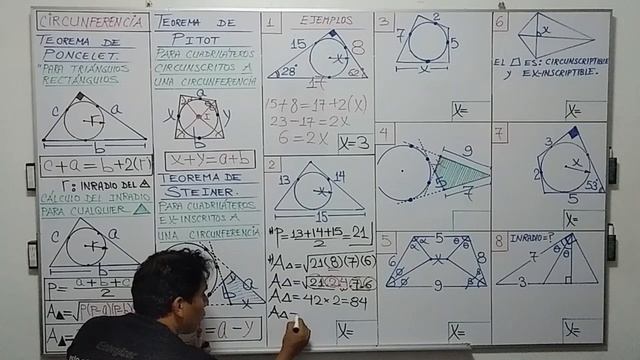 CIRCUNFERENCIA
TEOREMA DE
PONCELET.
"PARA TRIÁNGULOS
RECTÁNGULOS
c
a
r
b
c+a=b+2(r)
r: INRADIO DEL
CÁLCULO DEL INRADIO
PARA CUALQUIER
a
r
b
P=
a+b+c
2
TEOREMA DE
PITOT
PARA CUADRILÁTEROS
CIRCUNSCRITOS A
UNA CIRCUNFERENCIA
a
x
y
b
x+y=a+b
TEOREMA DE
STEINER.
PARA CUADRILÁTEROS
EX-INSCRITOS A
UNA CIRCUNFERENCIA
b
a
x
=a-y
1
EJEMPLOS
15
8
x
28°
62°
17
15+8=17+2(x)
23-17=2x
6=2x
X=3
2
13
14
x
15
*P=13+14+15=21
2
A=√21(8)(7)(6)
A=42×2=84
X=
3
2
7
5
x
X=
4
9
5
7
5
5
8
x
9
X=
6
x
EL
ES: CIRCUNSCRIPTIBLE
Y EX-INSCRIPTIBLE.
7
2
x
53°
5
X=
8
INRADIO=?
7
3